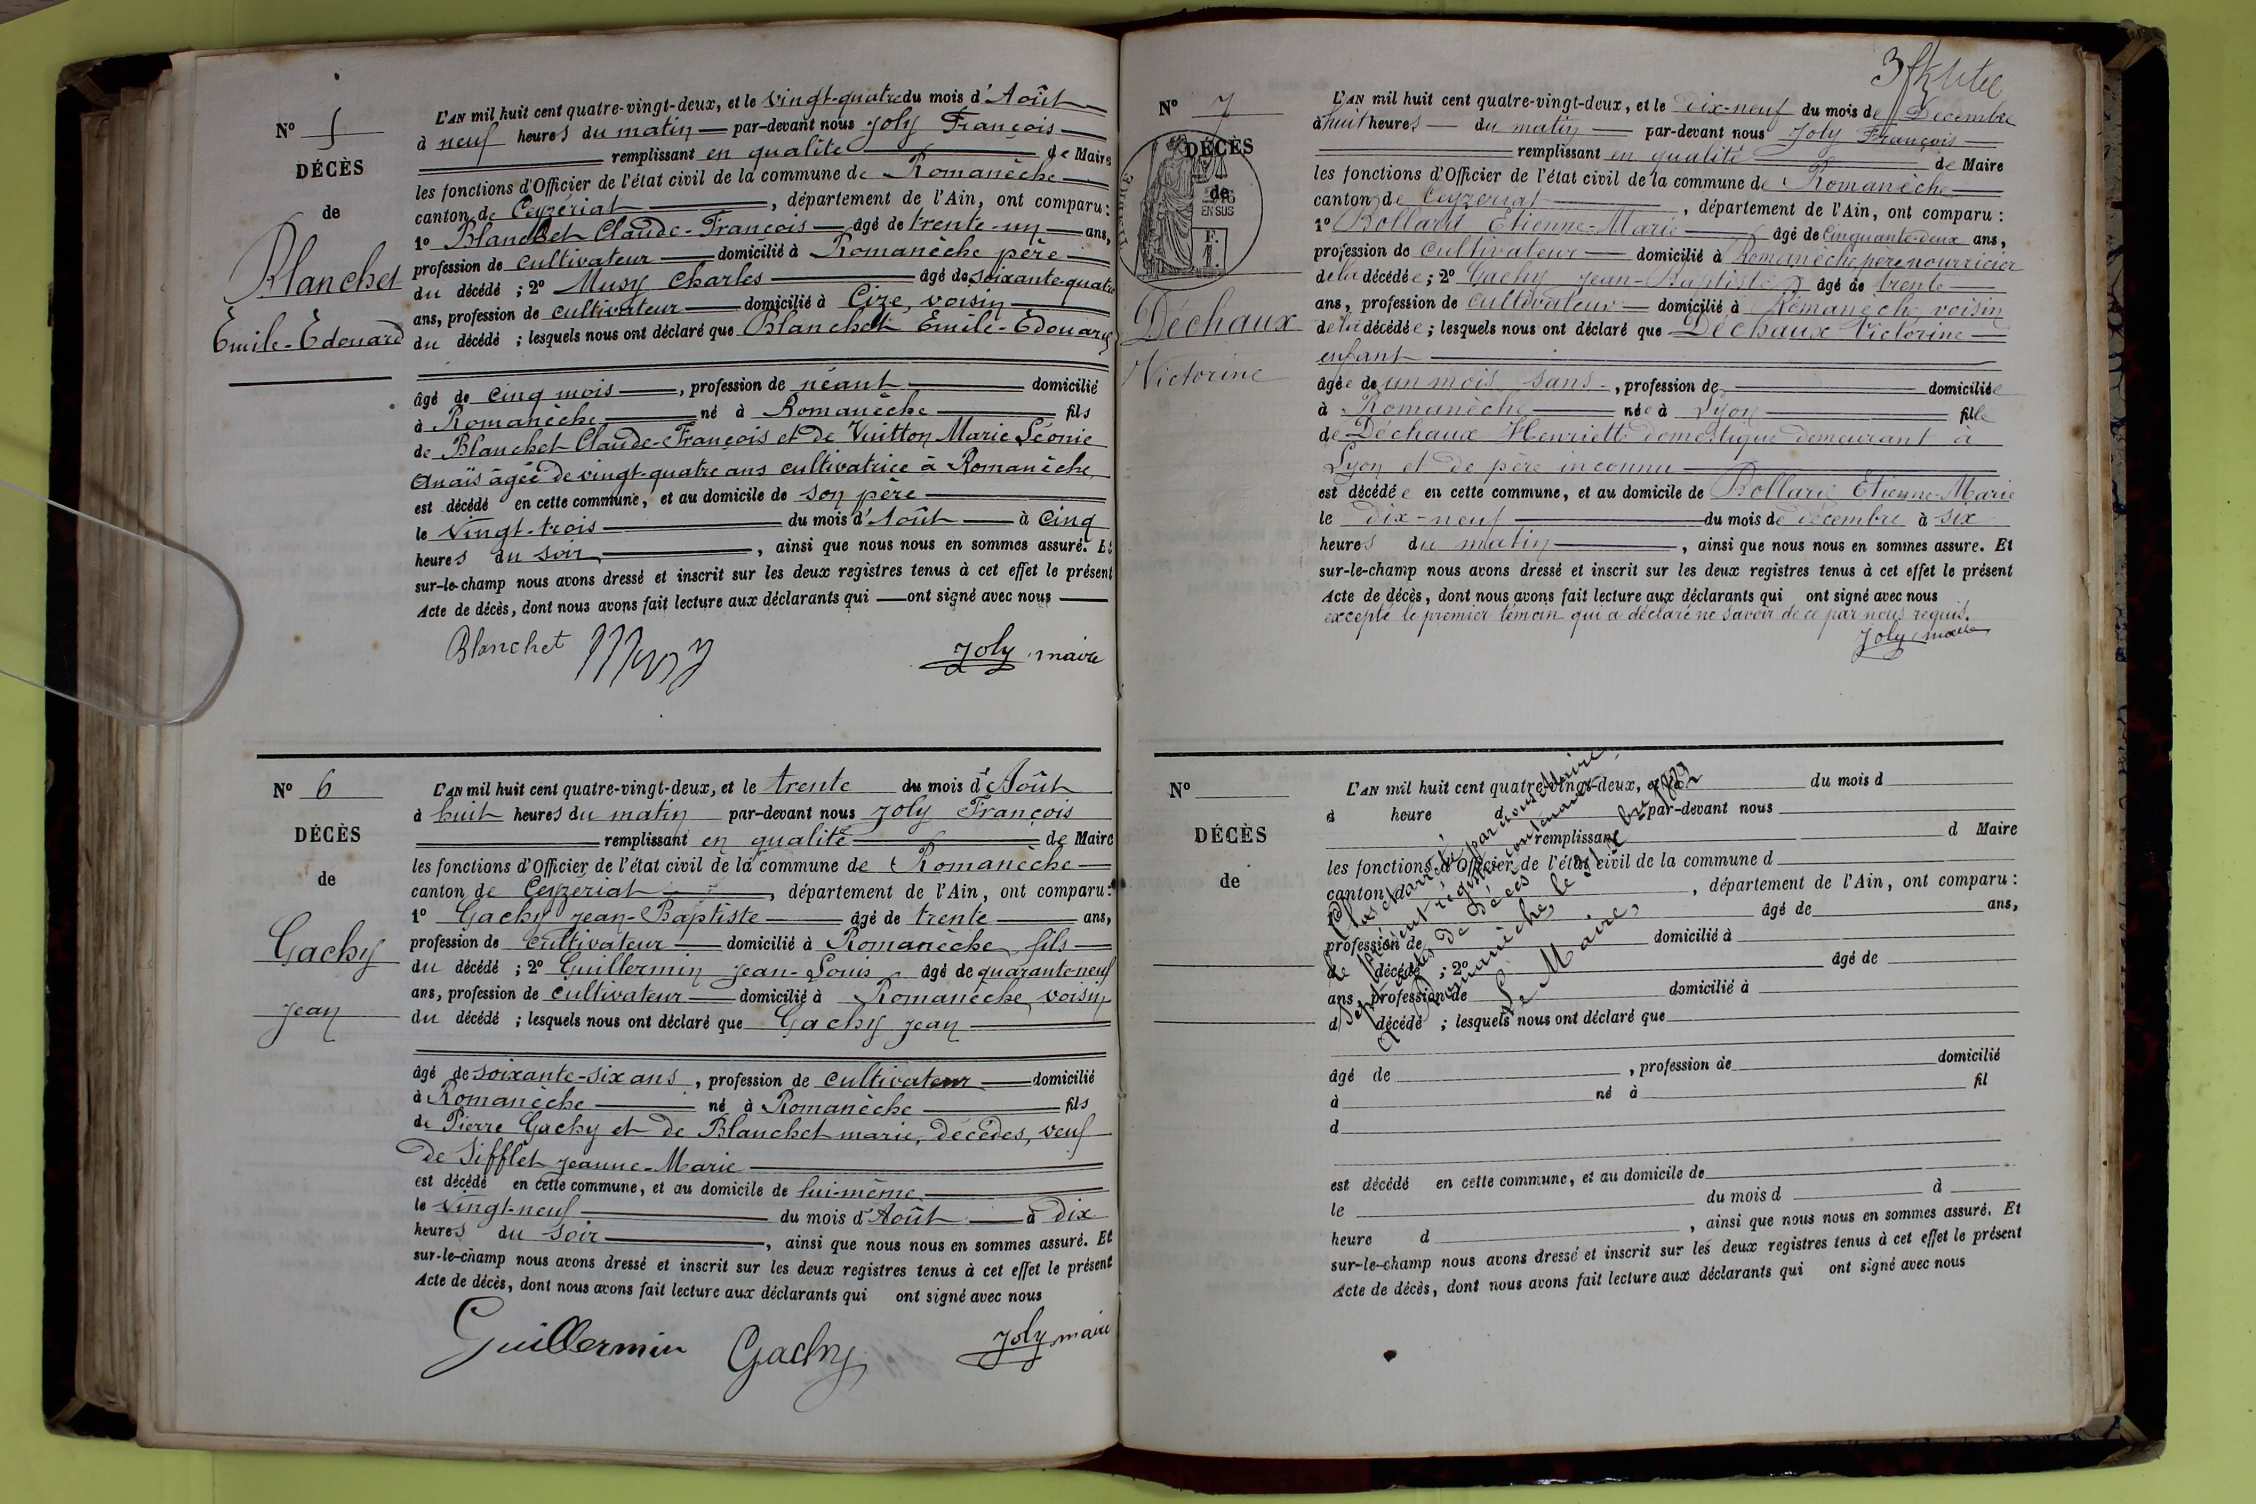 N° 5
DÉCÈS
de
Blanchet
Émile-Édouard
L'AN mil huit cent quatre-vingt-deux, et le vingt-quatre du mois d'Août
à neuf heures du matin par-devant nous Joly François
remplissant en qualité de Maire
les fonctions d'Officier de l'état civil de la commune de Romanèche
canton de Ceyzériat, département de l'Ain, ont comparu:
1° Blanchet Claude-François âgé de trente-un ans,
profession de cultivateur domicilié à Romanèche père
du décédé ; 2° Musy Charles âgé de soixante-quatre
ans, profession de cultivateur domicilié à Cize, voisin
du décédé ; lesquels nous ont déclaré que Blanchet Émile-Édouard
âgé de cinq mois, profession de néant domicilié
à Romanèche né à Romanèche fils
de Blanchet Claude-François et de Vuitton Marie Léonie
Anaïs âgée de vingt-quatre ans cultivatrice à Romanèche
est décédé en cette commune, et au domicile de son père
le vingt-trois du mois d'Août à cinq
heures du soir, ainsi que nous nous en sommes assuré. Et
sur-le-champ nous avons dressé et inscrit sur les deux registres tenus à cet effet le présent
Acte de décès, dont nous avons fait lecture aux déclarants qui ont signé avec nous
Blanchet Musy Joly maire
N° 6
DÉCÈS
de
Gachy
Jean
L'AN mil huit cent quatre-vingt-deux, et le trente du mois d'Août
à huit heures du matin par-devant nous Joly François
remplissant en qualité de Maire
les fonctions d'Officier de l'état civil de la commune de Romanèche
canton de Ceyzeriat, département de l'Ain, ont comparu:
1° Gachy Jean-Baptiste âgé de trente ans,
profession de cultivateur domicilié à Romanèche fils
du décédé ; 2° Guillermin Jean-Louis âgé de quarante neuf
ans, profession de cultivateur domicilié à Romanèche voisin
du décédé ; lesquels nous ont déclaré que Gachy Jean
âgé de soixante-six ans, profession de cultivateur domicilié
à Romanèche né à Romanèche fils
de Pierre Gachy et de Blanchet marie, décédés, veuf
de Sifflet Jeanne-Marie
est décédé en cette commune, et au domicile de lui-même
le vingt-neuf du mois d'Août à dix
heures du soir, ainsi que nous nous en sommes assuré. Et
sur-le-champ nous avons dressé et inscrit sur les deux registres tenus à cet effet le présent
Acte de décès, dont nous avons fait lecture aux déclarants qui ont signé avec nous
Guillermin Gachy Joly maire
3
N° 7
DÉCÈS
de
EN SUS
Déchaux
Victorine
L'AN mil huit cent quatre-vingt-deux, et le dix-neuf du mois de Décembre
à huit heures du matin par-devant nous Joly François
remplissant en qualité de Maire
les fonctions d'Officier de l'état civil de la commune de Romanèche
canton de Ceyzeriat, département de l'Ain, ont comparu :
1° Bollard Etienne-Marie âgé de Cinquante-deux ans,
profession de cultivateur domicilié à Romanèche père nourricier
de la décédée ; 2° Gachy Jean-Baptiste âgé de trente
ans, profession de cultivateur domicilié à Romanèche voisin
de la décédée ; lesquels nous ont déclaré que Déchaux Victorine
enfant
âgée de un mois sans, profession de domiciliée
à Romanèche née à Lyon fille
de Déchaux Henriette domestique demeurant à
Lyon et de père inconnu
est décédée en cette commune, et au domicile de Bollard Etienne-Marie
le dix-neuf du mois de décembre à six
heures du matin, ainsi que nous nous en sommes assuré. Et
sur-le-champ nous avons dressé et inscrit sur les deux registres tenus à cet effet le présent
Acte de décès, dont nous avons fait lecture aux déclarants qui ont signé avec nous
excepté le premier témoin qui a déclaré ne savoir de ce par nous requis.
Joly maire
N°
DÉCÈS
de
L'AN mil huit cent quatre-vingt-deux, et le du mois d
à heure d par-devant nous
remplissant d Maire
les fonctions d'Officier de l'état civil de la commune d
canton d, département de l'Ain, ont comparu :
âgé de ans,
profession de domicilié à
d décédé ; 2° âgé de
ans, profession de domicilié à
d décédé ; lesquels nous ont déclaré que
âgé de, profession de domicilié
à né à fil
d
est décédé en cette commune, et au domicile de
le du mois d à
heure d, ainsi que nous nous en sommes assuré. Et
sur-le-champ nous avons dressé et inscrit sur les deux registres tenus à cet effet le présent
Acte de décès, dont nous avons fait lecture aux déclarants qui ont signé avec nous
Clos et arrêté par nous Maire,
le présent registre contenant
sept actes de décès
à Romanèche, le 31 Xbre 1882
Le Maire,